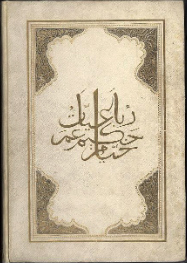 رباعیات
حکیم عمر
خیام